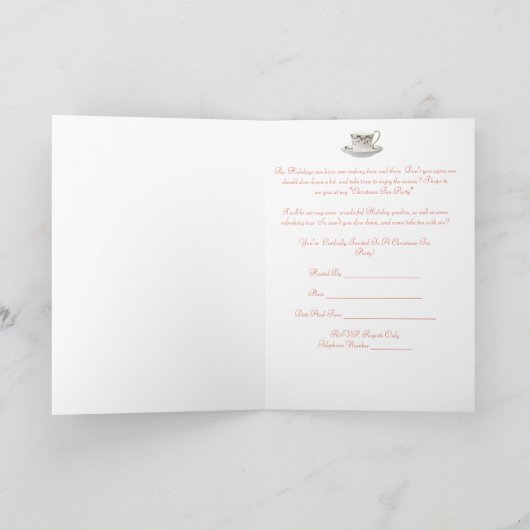 The Holidays can have one rushing here and there. Don't you agree one
should slow down a bit, and take time to enjoy the season? I hope to
see you at my "Christmas Tea Party"
I will be serving some wonderful Holiday goodies, as well as some
refreshing teas. So won't you slow down, and come take tea with me?
You're Cordially Invited To A Christmas Tea
Party!
Hosted By
Place
Date And Time
R.S.V.P. Regrets Only
Telephone Number